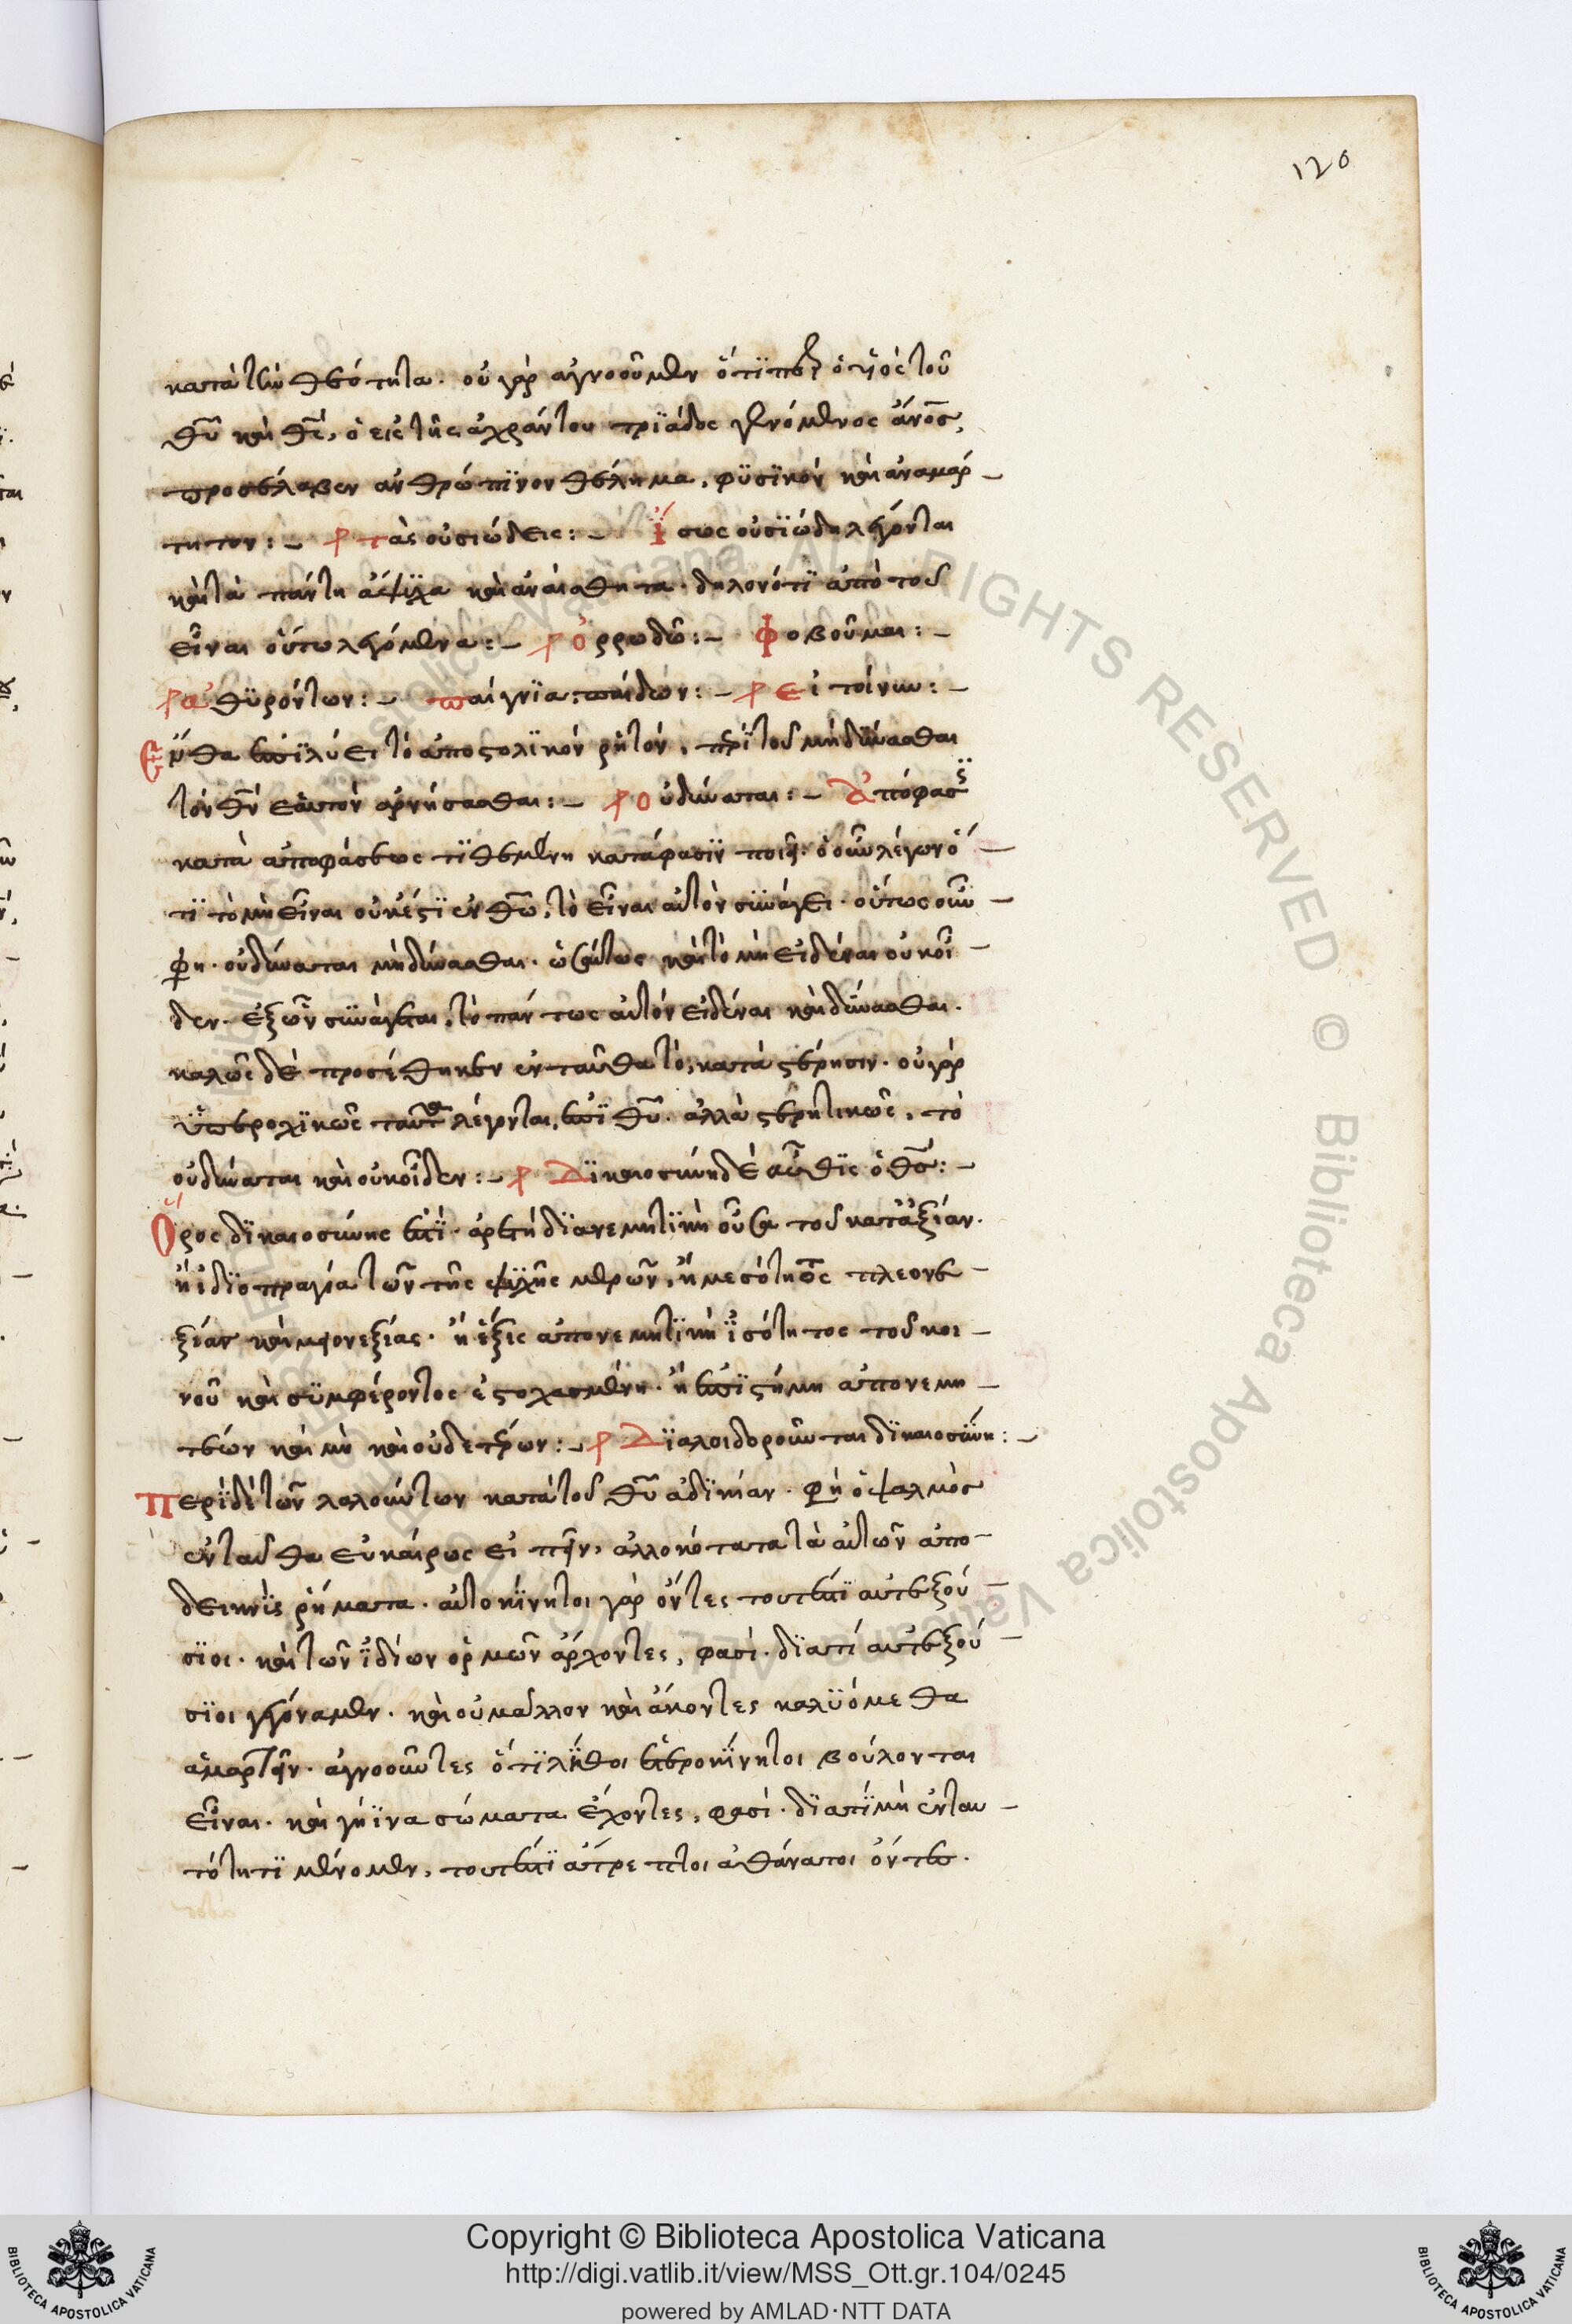 120
κατὰ τὴν θεότητα. οὐ γὰρ ἀγνοοῦμεν ὅτϊπερ ὁ ϋἱὸς τοῦ
θῦ καὶ θς, ὁ εἷς τῆς ἀχράντου τρϊάδος γενόμενος ἄνος,
προσέλαβεν ἀνθρώπϊνον θέλημα, φϋσϊκὸν καὶ ἀναμάρ –
τητον : – τὰς οὐσιώδεις : – Ἴσως οὐσϊώδη λέγονται
καὶ τὰ πάντη ἄψϋχα καὶ ἀναίσθητα. δηλονότϊ ἀπὸ τοῦ
εἶναι οὕτω λεγόμενα : – ὀρρωδῶ : – Φοβοῦμαι : –
ἀθϋρόντων : – παίγνϊα παίδων : – Εἰ τοίνυν : –
Ενθα ἐπϊλύει τὸ ἀποστολϊκὸν ῥητόν, περὶ τοῦ μὴ δύνασθαι
τὸν θν ἑαυτὸν ἀρνήσασθαι : – οὐ δύναται : – Ἀπόφασϊς
κατὰ ἀποφάσεως τϊθεμένη κατάφασϊν ποιεῖ. ὁ οὖν λέγων ὅ –
τϊ τὸ μὴ εἶναι οὐκ ἔστϊ ἐν θῶ, τὸ εἶναι αὐτὸν συνάγει. οὕτως οὖν –
φη. οὐ δύναται μὴ δύνασθαι. ὡσαύτως καὶ τὸ μὴ εἰδέναι οὐκ οἶ –
δεν. ἐξ ὧν συνάγεται, τὸ πάντως αὐτὸν εἰδέναι καὶ δύνασθαι.
καλῶς δὲ προσέθηκεν ἐνταῦθα τὸ, κατὰ στέρησιν. οὐ γὰρ
ϋπεροχϊκῶς ταῦτα λέγονται, ἐπὶ θῦ. ἀλλὰ στερητικῶς, τὸ
οὐ δύναται καὶ οὐκ οἶδεν : – Δϊκαιοσύνη δὲ αὖθϊς ὁ θς : –
Ορος δϊκαιοσύνης ἐστὶ. ἀρετὴ δϊανεμητϊκὴ οὖσα τοῦ κατ᾽ ἀξίαν.
ἢ ἰδϊοπραγία τῶν τῆς ψϋχῆς μερῶν, ἢ μεσότητος πλεονε –
ξίαν καὶ μειονεξίας. ἢ ἕξις ἀπονεμητϊκὴ ἰσότητος τοῦ κοι –
νοῦ καὶ σϋμφέροντος ἐστοχασμένη. ἢ ἐπϊστήμη ἀπονεμη –
τέων καὶ μὴ καὶ οὐδετέρων : – Δϊαλοιδοροῦνται δϊκαιοσύνη : –
Περὶ δὲ τῶν λαλούντων κατὰ τοῦ θῦ ἀδϊκίαν. φη ὁ ψαλμὸς
ἐνταῦθα εὐκαίρως εἰπεῖν, ἀλλοκότατα τὰ αὐτῶν ἀπο –
δεικνὺς ῥήματα. αὐτοκίνητοι γὰρ ὄντες τουτέστϊ αὐτεξού –
σϊοι. καὶ τῶν ἰδίων ὁρμῶν ἄρχοντες, φασὶ. δϊατί αὐτεξού –
σϊοι γεγόναμεν. καὶ οὐ μᾶλλον καὶ ἄκοντες καλϋόμεθα
ἁμαρτεῖν. ἀγνοοῦντες ὅτϊ λίθοι ἑτεροκίνητοι βούλονται
εἶναι. καὶ γήϊνα σώματα ἔχοντες, φασὶ. δϊατί μὴ ἐν ταυ –
τότητϊ μένομεν, τουτέστϊ ἄτρεπτοι ἀθάνατοι ὄντες.
Copyright © Biblioteca Apostolica Vaticana
http://digi.vatlib.it/view/MSS_Ott.gr.104/0245
powered by AMLAD·NTT DATA